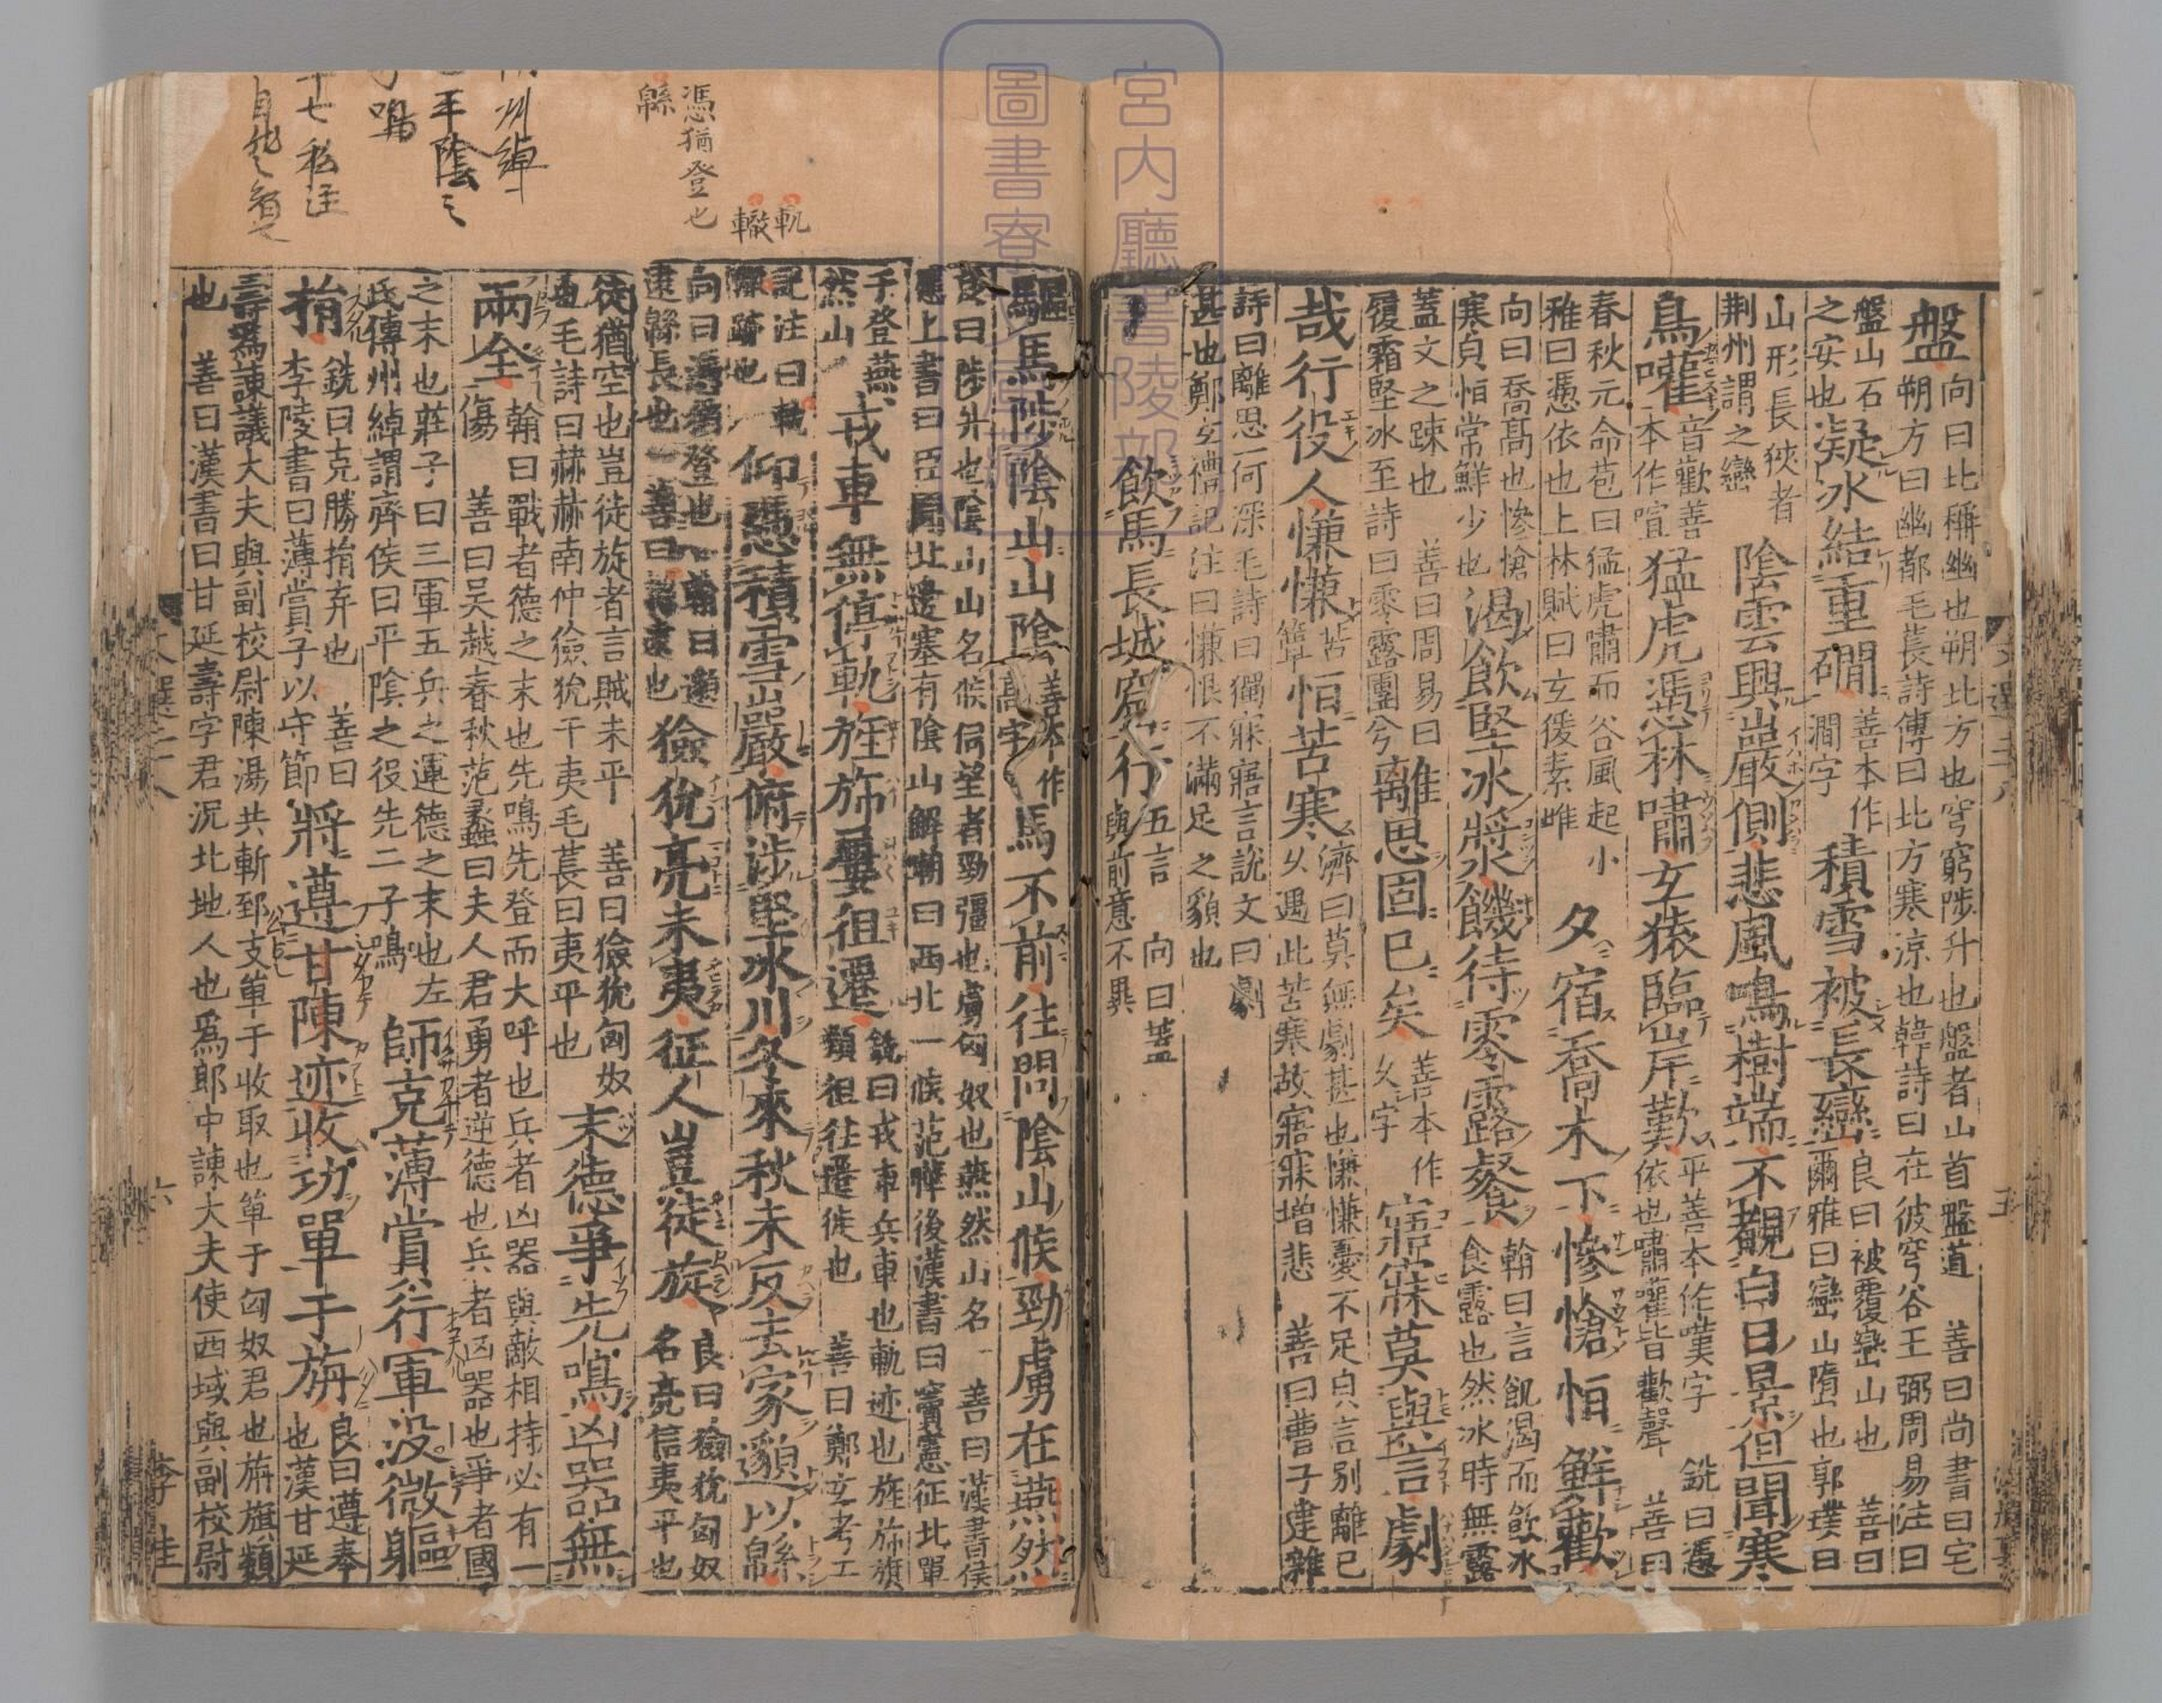 盤
向曰北稱幽也朔北方也穹窮陟升也盤者山首盤道 善曰尚書曰宅
朔方曰幽都毛萇詩傳曰北方寒涼也韓詩曰在彼穹谷王弼周易注曰
盤山石
之安也
凝冰結重磵
善本作
澗字
積雪被長巒
良曰被覆巒山也 善曰
爾雅曰巒山隋也郭璞曰
山形長狹者
荆州謂之巒
陰雲興巖側悲風鳴樹端不覩白日景但聞寒
鳥嚾
音歡善
本作喧
猛虎憑林嘯玄猿臨岸歎
平善本作嘆字 銑曰憑
依也嘯嚾皆歡聲 善曰
春秋元命苞曰猛虎嘯而谷風起小
雅曰憑依也上林賦曰玄猨素雌
夕宿喬木下慘愴恒鮮歡
向曰喬高也慘愴
寒皃恒常鮮少也
渴飲堅冰漿饑待零露餐
翰曰言飢渴而飲冰
食露也然冰時無露
蓋文之踈也 善曰周易曰
履霜堅冰至詩曰零露團兮
離思固已矣
善本作
久字
寤寐莫與言劇
哉行役人慊慊
苦
簟
恒苦寒
濟曰莫無劇甚也慊慊憂不足皃言別離已
久遇此苦寒故寤寐增悲 善曰曹子建雜
詩曰離思一何深毛詩曰獨寐寤言說文曰劇
甚也鄭玄禮記注曰慊恨不滿足之貌也
飲馬長城窟行
五言 向曰蓋
與前意不異
驅馬陟陰山山陰
善本作
高字
馬不前往問陰山候勁虜在燕然
銑曰陟升也陰山山名候伺望者勁彊也虜匈奴也燕然山名 善曰漢書侯
應上書曰臣聞北邊塞有陰山解嘲曰西北一候范曄後漢書曰竇憲征北單
于登燕
然山
戎車無停軌旌旆屢徂遷
銑曰戎車兵車也軌迹也旌旆旗
類徂往遷徙也 善曰鄭玄考工
記注曰軌
轍跡也
仰憑積雪巖俯涉堅冰川冬來秋未反去家邈以緜
向曰憑猶登也 翰曰邈
逮緜長也 善曰邈遠也
獫狁亮未夷征人豈徒旋
良曰獫狁匈奴
名亮信夷平也
徒猶空也豈徒旋者言賊未平 善曰獫狁匈奴
也毛詩曰赫赫南仲獫狁于夷毛萇曰夷平也
末德爭先鳴凶器無
兩全
翰曰戰者德之末也先鳴先登而大呼也兵者凶器與敵相持必有一
傷 善曰吳越春秋范蠡曰夫人君勇者逆德也兵者凶器也爭者國
之末也莊子曰三軍五兵之運德之末也左
氏傳州綽謂齊侯曰平隂之役先二子鳴
師克薄賞行軍沒微軀
捐
銑曰克勝捐弃也 善曰
李陵書曰薄賞子以守節
將遵甘陳迹收功單于旃
良曰遵奉
也漢甘延
壽為諫議大夫與副校尉陳湯共斬郅支單于收取也單于匈奴君也旃旗類
也 善曰漢書曰甘延壽字君況北地人也為郎中諫大夫使西域與副校尉
軌
轍
憑猶登也
緜
宮内廳書陵部
圖書寮
文選二十八
六
李